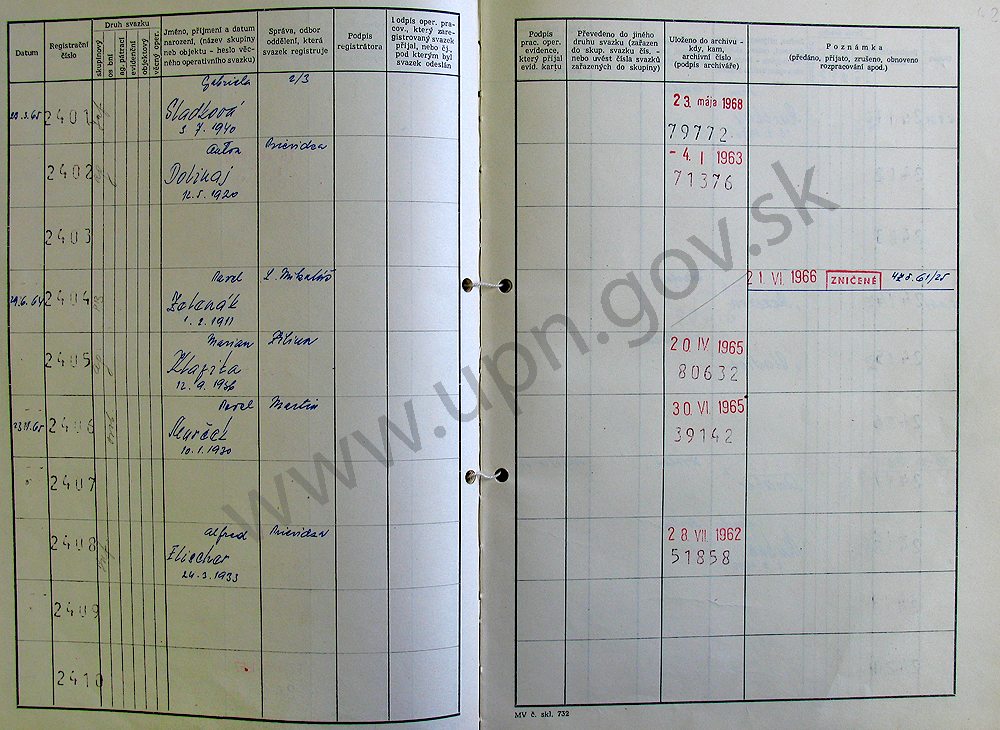 Datum
Registrační číslo
Druh svazku
skupinový
osobní
ag. pátrací
evidenční
objektový
věcný oper.
Jméno, příjmení a datum
narození, (název skupiny
neb objektu - heslo věc-
ného operativního svazku)
Správa, odbor
oddělení, která
svazek registruje
Podpis
registrátora
Podpis oper. pra-
cov., který zare-
gistrovaný svazek
přijal, nebo čj.,
pod kterým byl
svazek odeslán
Podpis
prac. oper.
evidence,
který přijal
evid. kartu
Převedeno do jiného
druhu svazku (zařazen
do skup. svazku čís. -
nebo uvést čísla svazků
zařazených do skupiny)
Uloženo do archivu -
kdy, kam,
archivní číslo
(podpis archiváře)
Poznámka
(předáno, přijato, zrušeno, obnoveno
rozpracování apod.)
Gabriela 2/3
2401 Sladková
3 7. 1940
23. mája 1968
79772
Anton Prievidza
2402 Dolinaj
12.5.1920
- 4. I 1963
71376
2403
Pavel L. Mikuláš
29.6.64 2404
1.2.1911
21 VI. 1966 ZNIČENÉ
Marian Žilina
2405 Klapita
12.9.1936
20. IV 1965
80632
Pavel Martin
2406
10.1.1930
30. VI. 1965
39142
2407
Alfred Prievidza
2408 Elischer
24.3.1933
28. VII. 1962
51858
2409
2410
MV č. skl. 732
www.upn.gov.sk